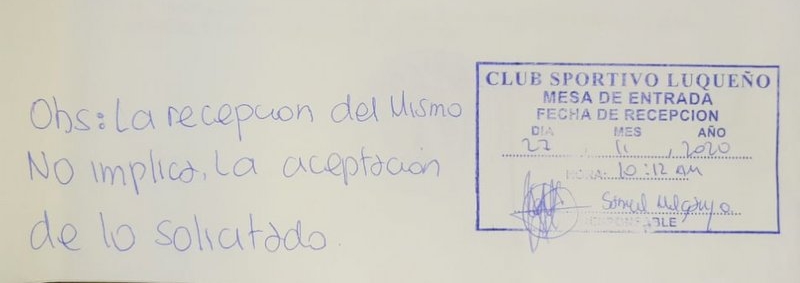 Obs: La recepcion del Mismo
No implica, La aceptación
de lo solicitado.
CLUB SPORTIVO LUQUEÑO
MESA DE ENTRADA
FECHA DE RECEPCION
DIA MES AÑO
27 11 2020
HORA: 10:12 am